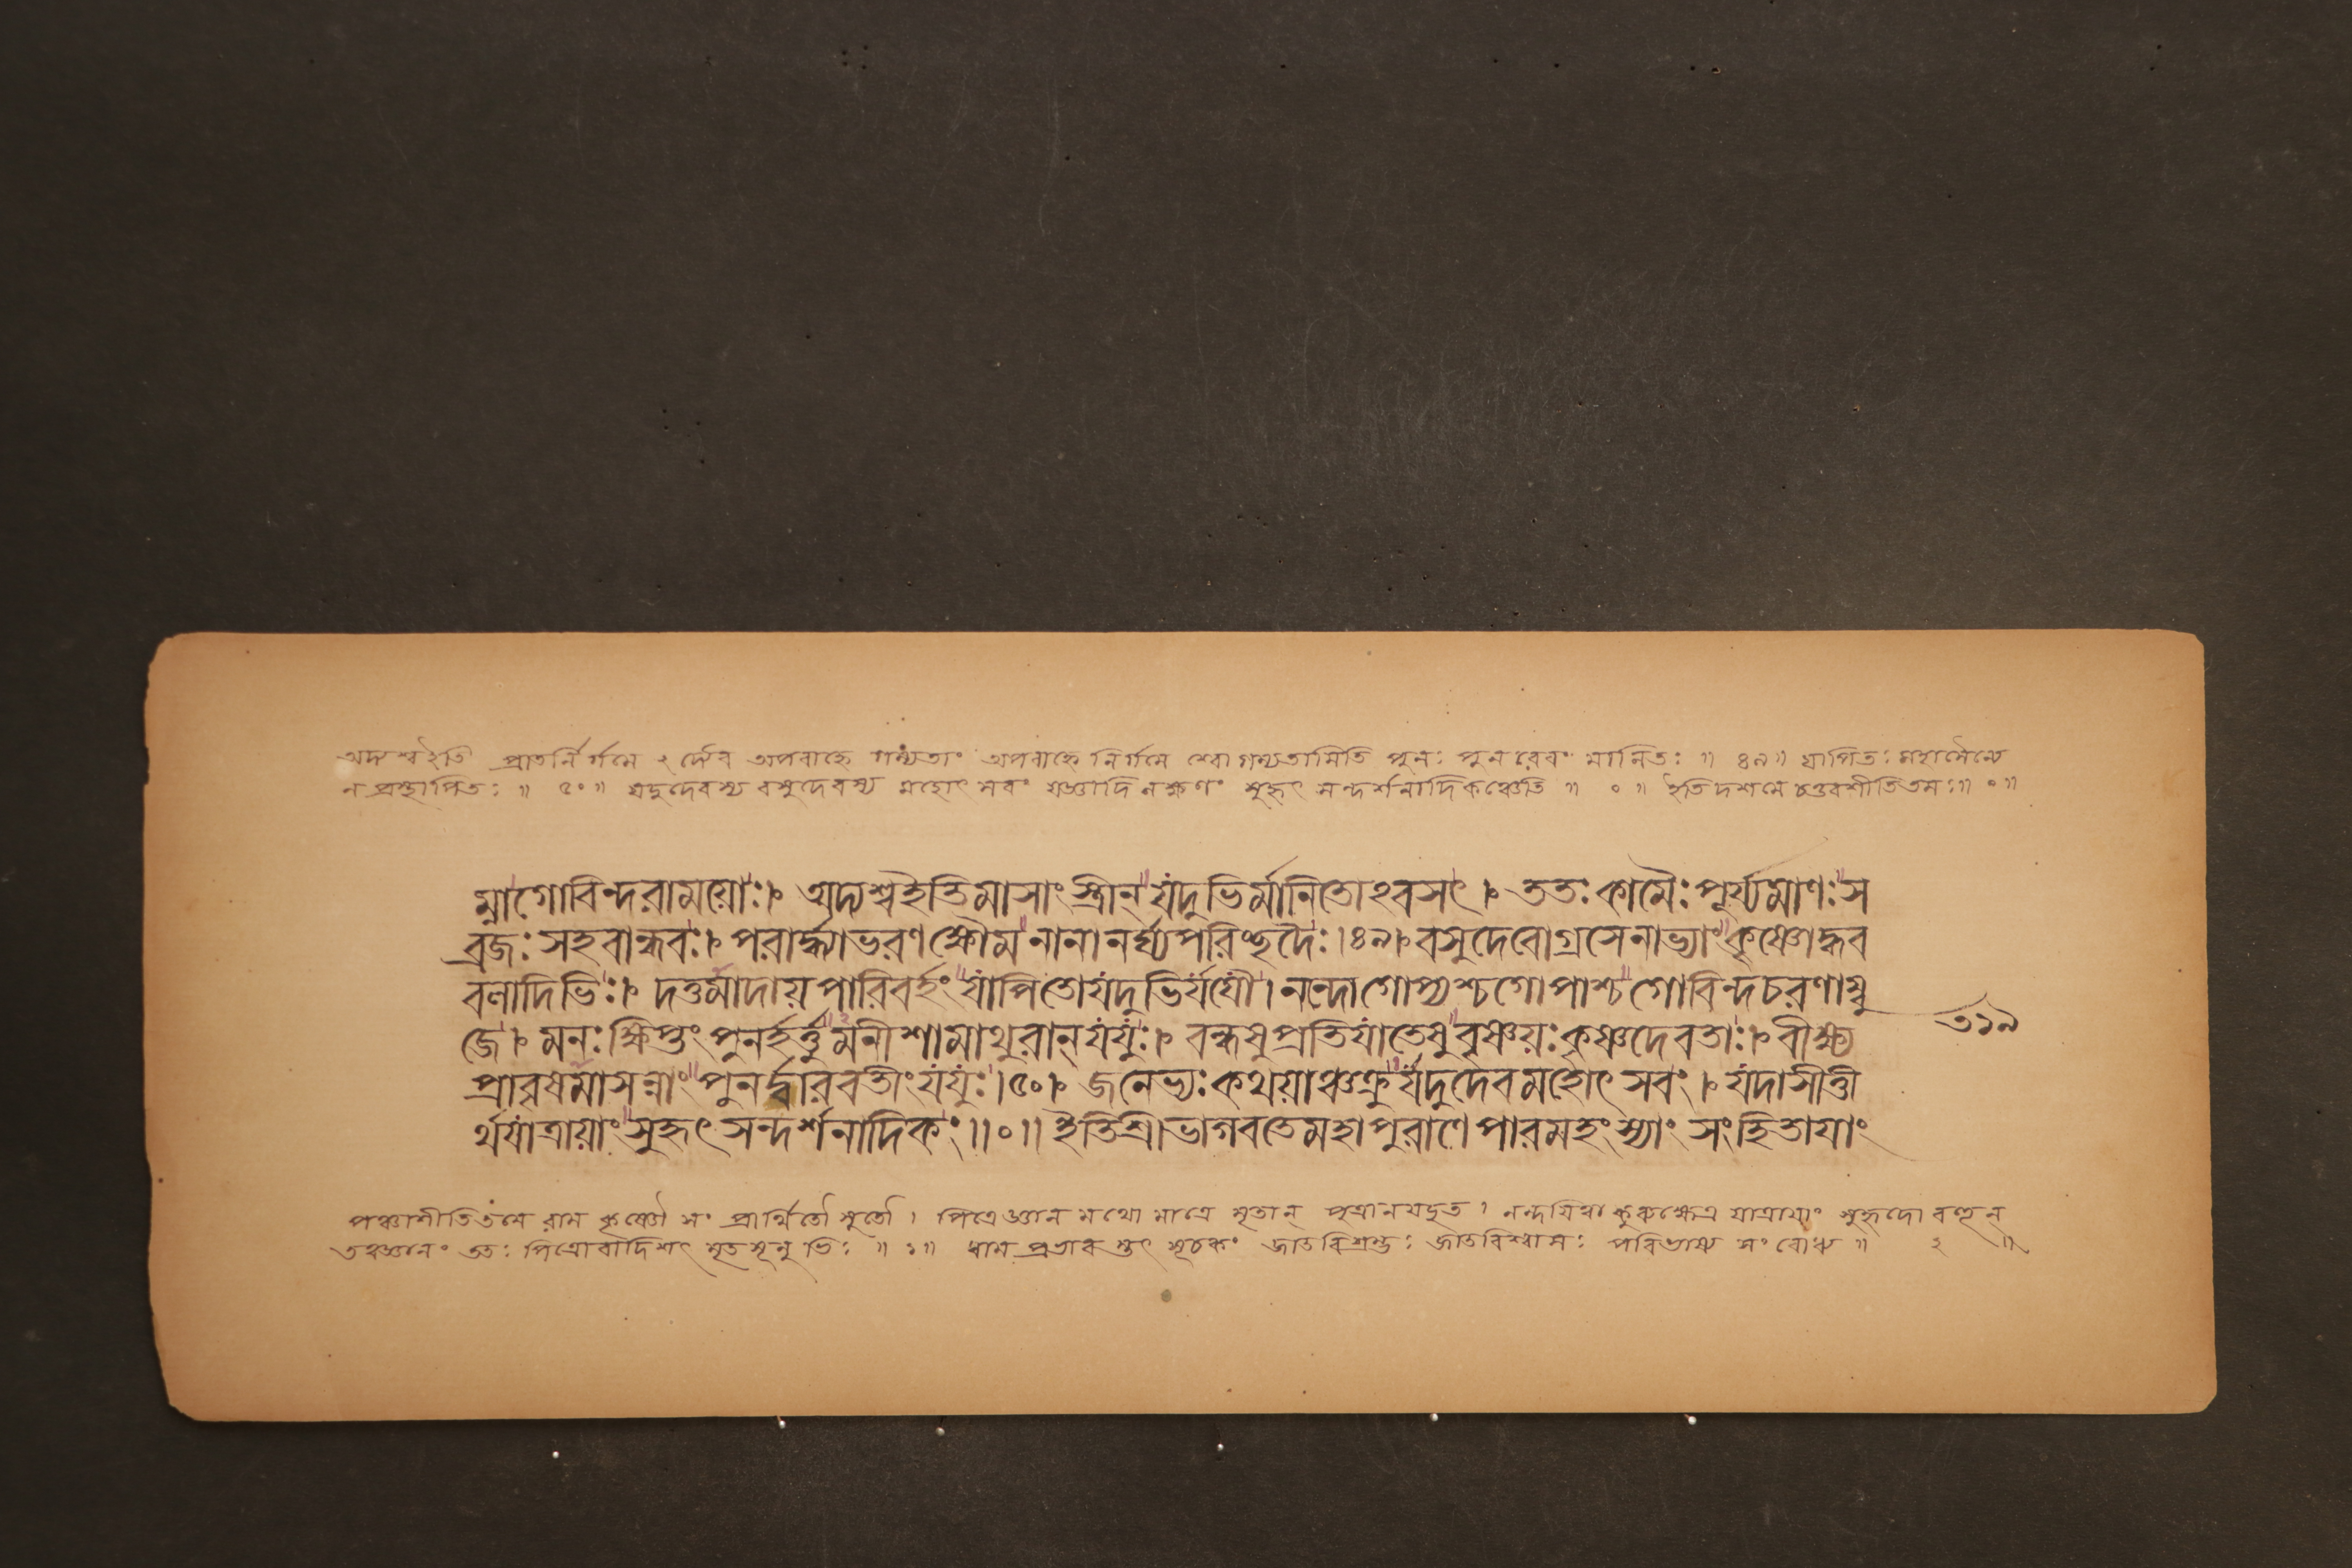 অদ্যশ্ব ইতি প্রাতর্নির্গমে ২ দ্যৈব অপরাহ্নে গম্যতাং অপরাহ্নে নির্গমে শ্বো গম্যতামিতি পুনঃ পুনরেবং মানিতঃ ॥ ৪৯॥ যাপিতঃ মহাসৈন্যে
ন প্রস্থাপিতঃ ॥ ৫০॥ যদুদেবস্য বসুদেবস্য মহোৎসবং যজ্ঞাদি লক্ষণং সুহৃৎ সন্দর্শনাদিকঞ্চেতি ॥ ০ ॥ ইতি দশমে চতুরশীতিতমঃ॥ ০॥
ম্নাগোবিন্দরাময়োঃ। অদ্যশ্বইতিমাসাংস্ত্রীন্ যদুভির্মানিতোঽবসৎ। ততঃ কামৈঃ পূর্য্যমাণঃ স
ব্রজঃ সহবান্ধবঃ। পরার্দ্ধ্যাভরণক্ষৌমনানানর্ঘ্যপরিচ্ছদৈঃ।৪৯। বসুদেবোগ্রসেনাভ্যাং কৃষ্ণোদ্ধব
বলাদিভিঃ। দত্তমাদায়পারিবর্হং যাপিতোযদুভির্যযৌ। নন্দোগোপ্যশ্চগোপাশ্চগোবিন্দচরণাম্বু
জে। মনঃ ক্ষিপ্তং পুনর্হর্ত্তুমনীশামাথুরান্ যযুঃ। বন্ধুষুপ্রতিযাতেষুবৃষ্ণয়ঃকৃষ্ণদেবতাঃ। বীক্ষ্য
৩১৯
প্রাবৃষমাসন্নাং পুনর্দ্বারবতীংযযুঃ।৫০। জনেভ্যঃকথয়াঞ্চক্রুর্যদুদেবমহোৎসবং। যদাসীত্তী
র্থযাত্রায়াং সুহৃৎ সন্দর্শনাদিকং॥০॥ ইতিশ্রীভাগবতেমহাপুরাণেপারমহংস্যাং সংহিতাযাং
পঞ্চাশীতিতমে রাম কৃষ্ণৌ সং প্রার্থিতৌ সুতৌ। পিত্রে জ্ঞান মথো মাত্রে মৃতান্ পুত্রানযচ্ছত। কুরুক্ষেত্র যাত্রায়াং সুহৃদো বহূন্
তত্ত্বজ্ঞানং ততঃ পিত্রোরাদিশৎ মৃতসূনুভিঃ ॥ ১॥ ধাম প্রভাব সূচকং জাতবিশ্রম্ভঃ জাতবিশ্বাসঃ পরিভাষ্য সংবোধ্য ॥ ২ ॥